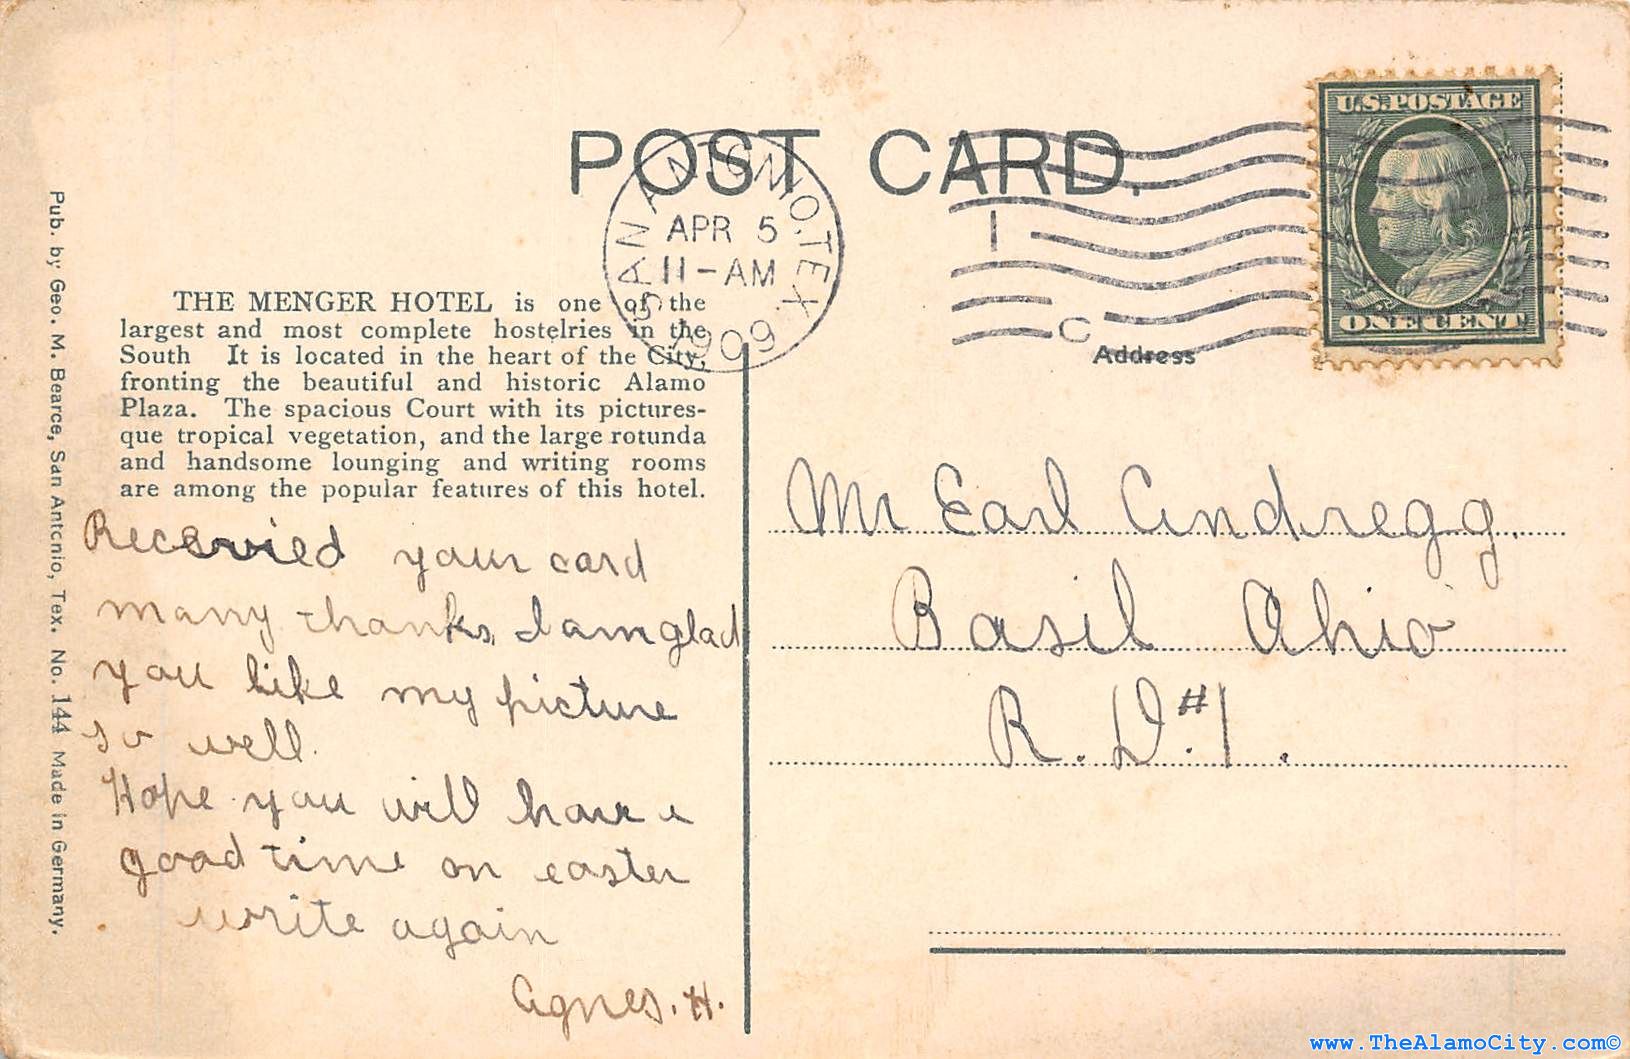 POST CARD.
U.S. POSTAGE
ONE CENT
SAN ANTONIO, TEX.
APR 5
11-AM
1909
1
C
Address
THE MENGER HOTEL is one of the
largest and most complete hostelries in the
South It is located in the heart of the City,
fronting the beautiful and historic Alamo
Plaza. The spacious Court with its pictures-
que tropical vegetation, and the large rotunda
and handsome lounging and writing rooms
are among the popular features of this hotel.
Pub. by Geo. M. Bearce, San Antonio, Tex. No. 144 Made in Germany.
Recervied your card
many thanks, I am glad
you like my picture
so well.
Hope you will have a
good time on easter
write again
Agnes. H.
Mr Earl Andregg.
Basil Ohio
R. D. #1.
www.TheAlamoCity.com©